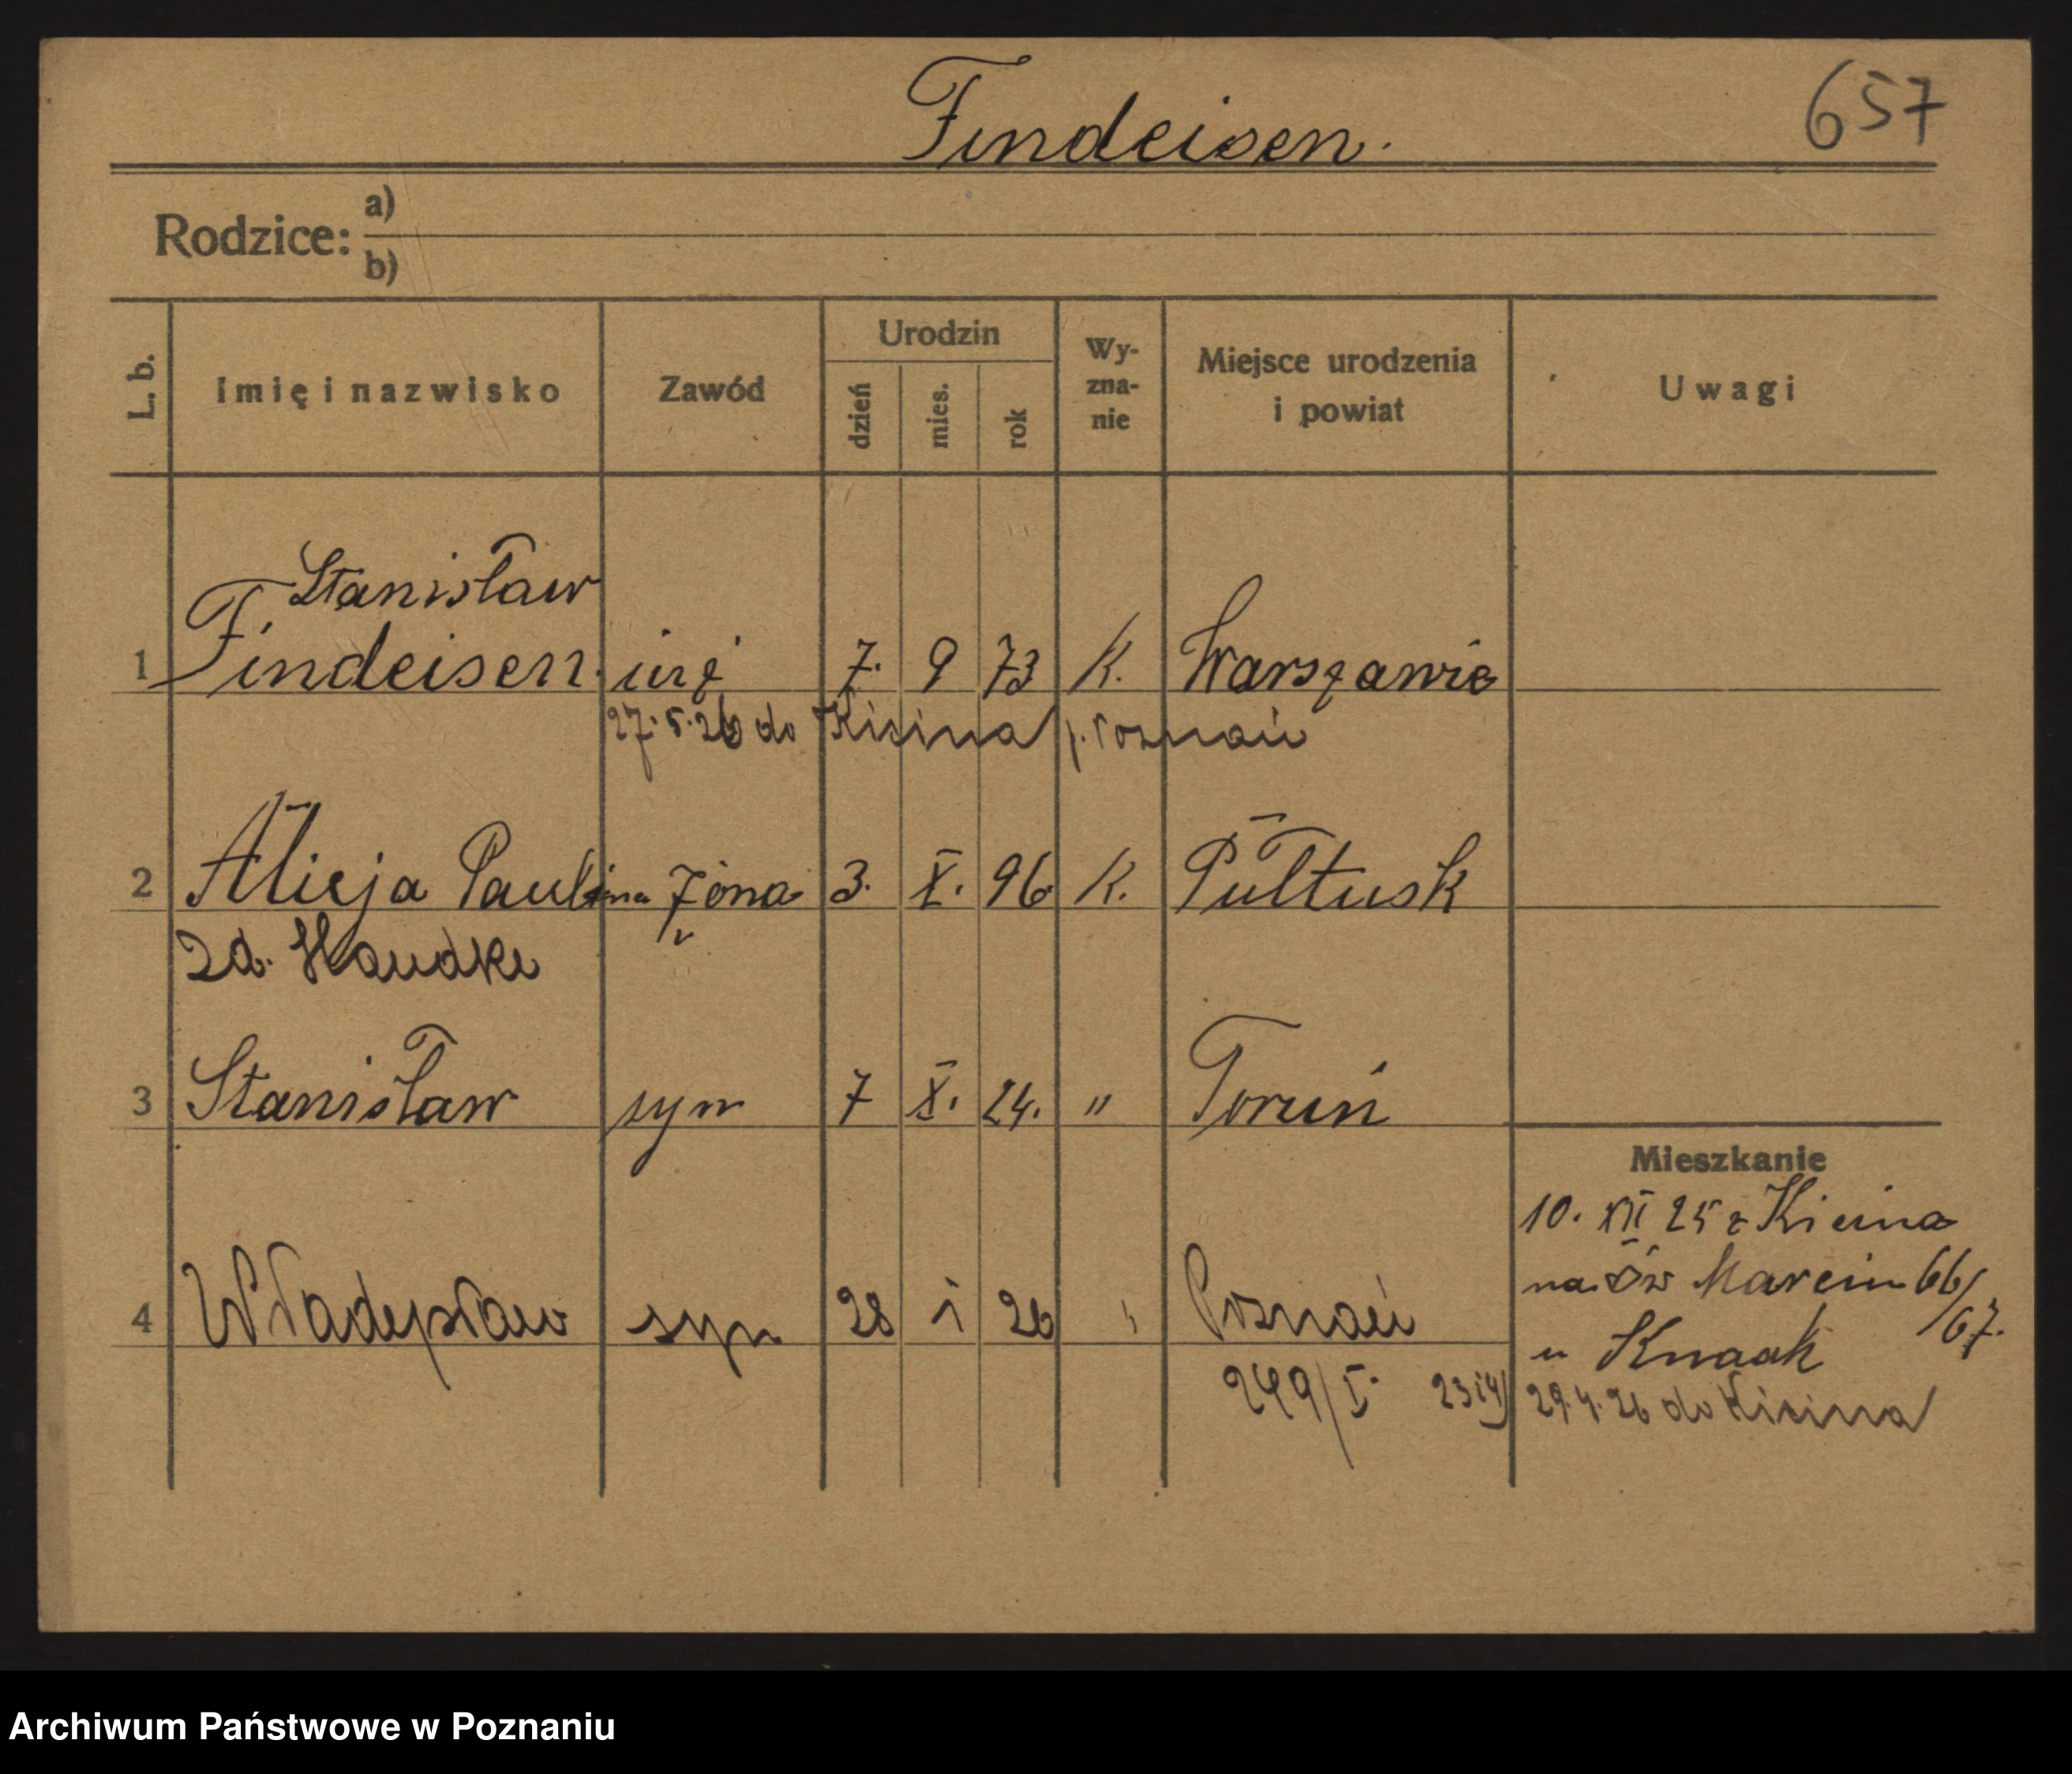 657
Findeisen.
Rodzice: a)
b)
L. b. Imię i nazwisko Zawód Urodzin dzień mies. rok Wy-zna-nie Miejsce urodzenia i powiat Uwagi
Stanisław
1 Findeisen. inż 7. 9 73 K. Warszawie
27.5.26 do Kicina p. Poznań
2 Alicja Paulina żona 3. X. 96 K. Pułtusk
zd. Haudke
3 Stanisław syn 7 X. 24. " Toruń
Mieszkanie
10. XII 25 z Kicina
na Św Marcin 66/67.
4 Władysław syn 28 I 26 " Poznań
u Knaak
249/I. 23
29.4.26 do Kicina
Archiwum Państwowe w Poznaniu